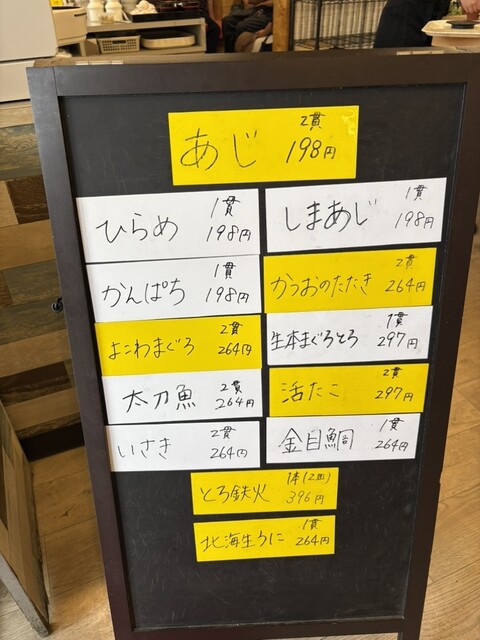 あじ 2貫 198円
ひらめ 1貫 198円
しまあじ 1貫 198円
かんぱち 1貫 198円
かつおのたたき 2貫 264円
よこわまぐろ 2貫 264円
生本まぐろとろ 1貫 297円
太刀魚 2貫 264円
活たこ 2貫 297円
いさき 2貫 264円
金目鯛 1貫 264円
とろ鉄火 1本(2皿) 396円
北海生うに 1貫 264円